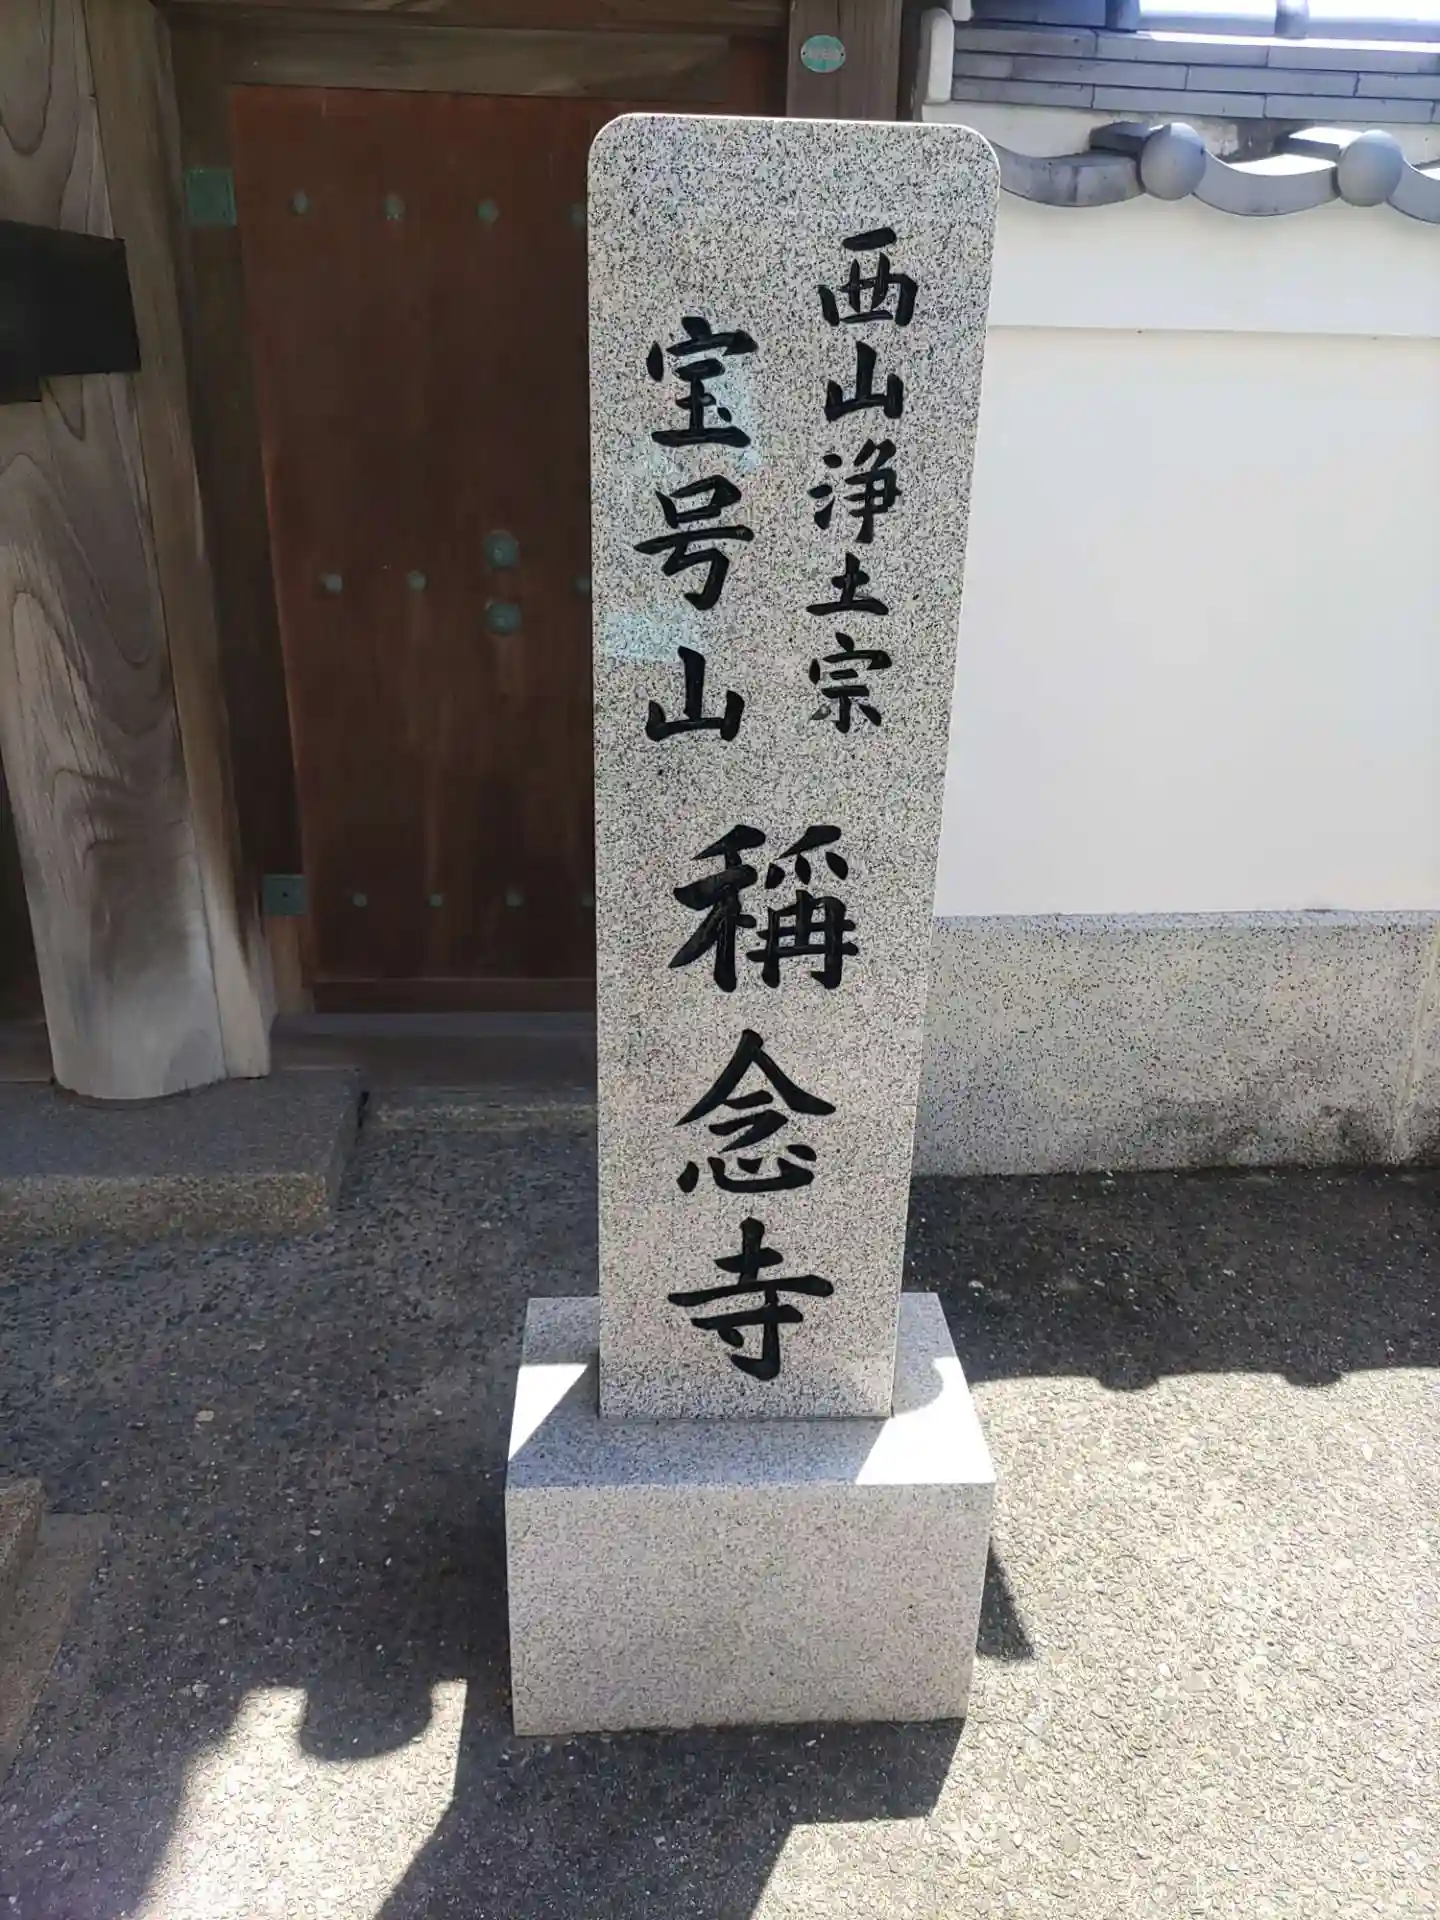 西山浄土宗
宝号山
稱念寺